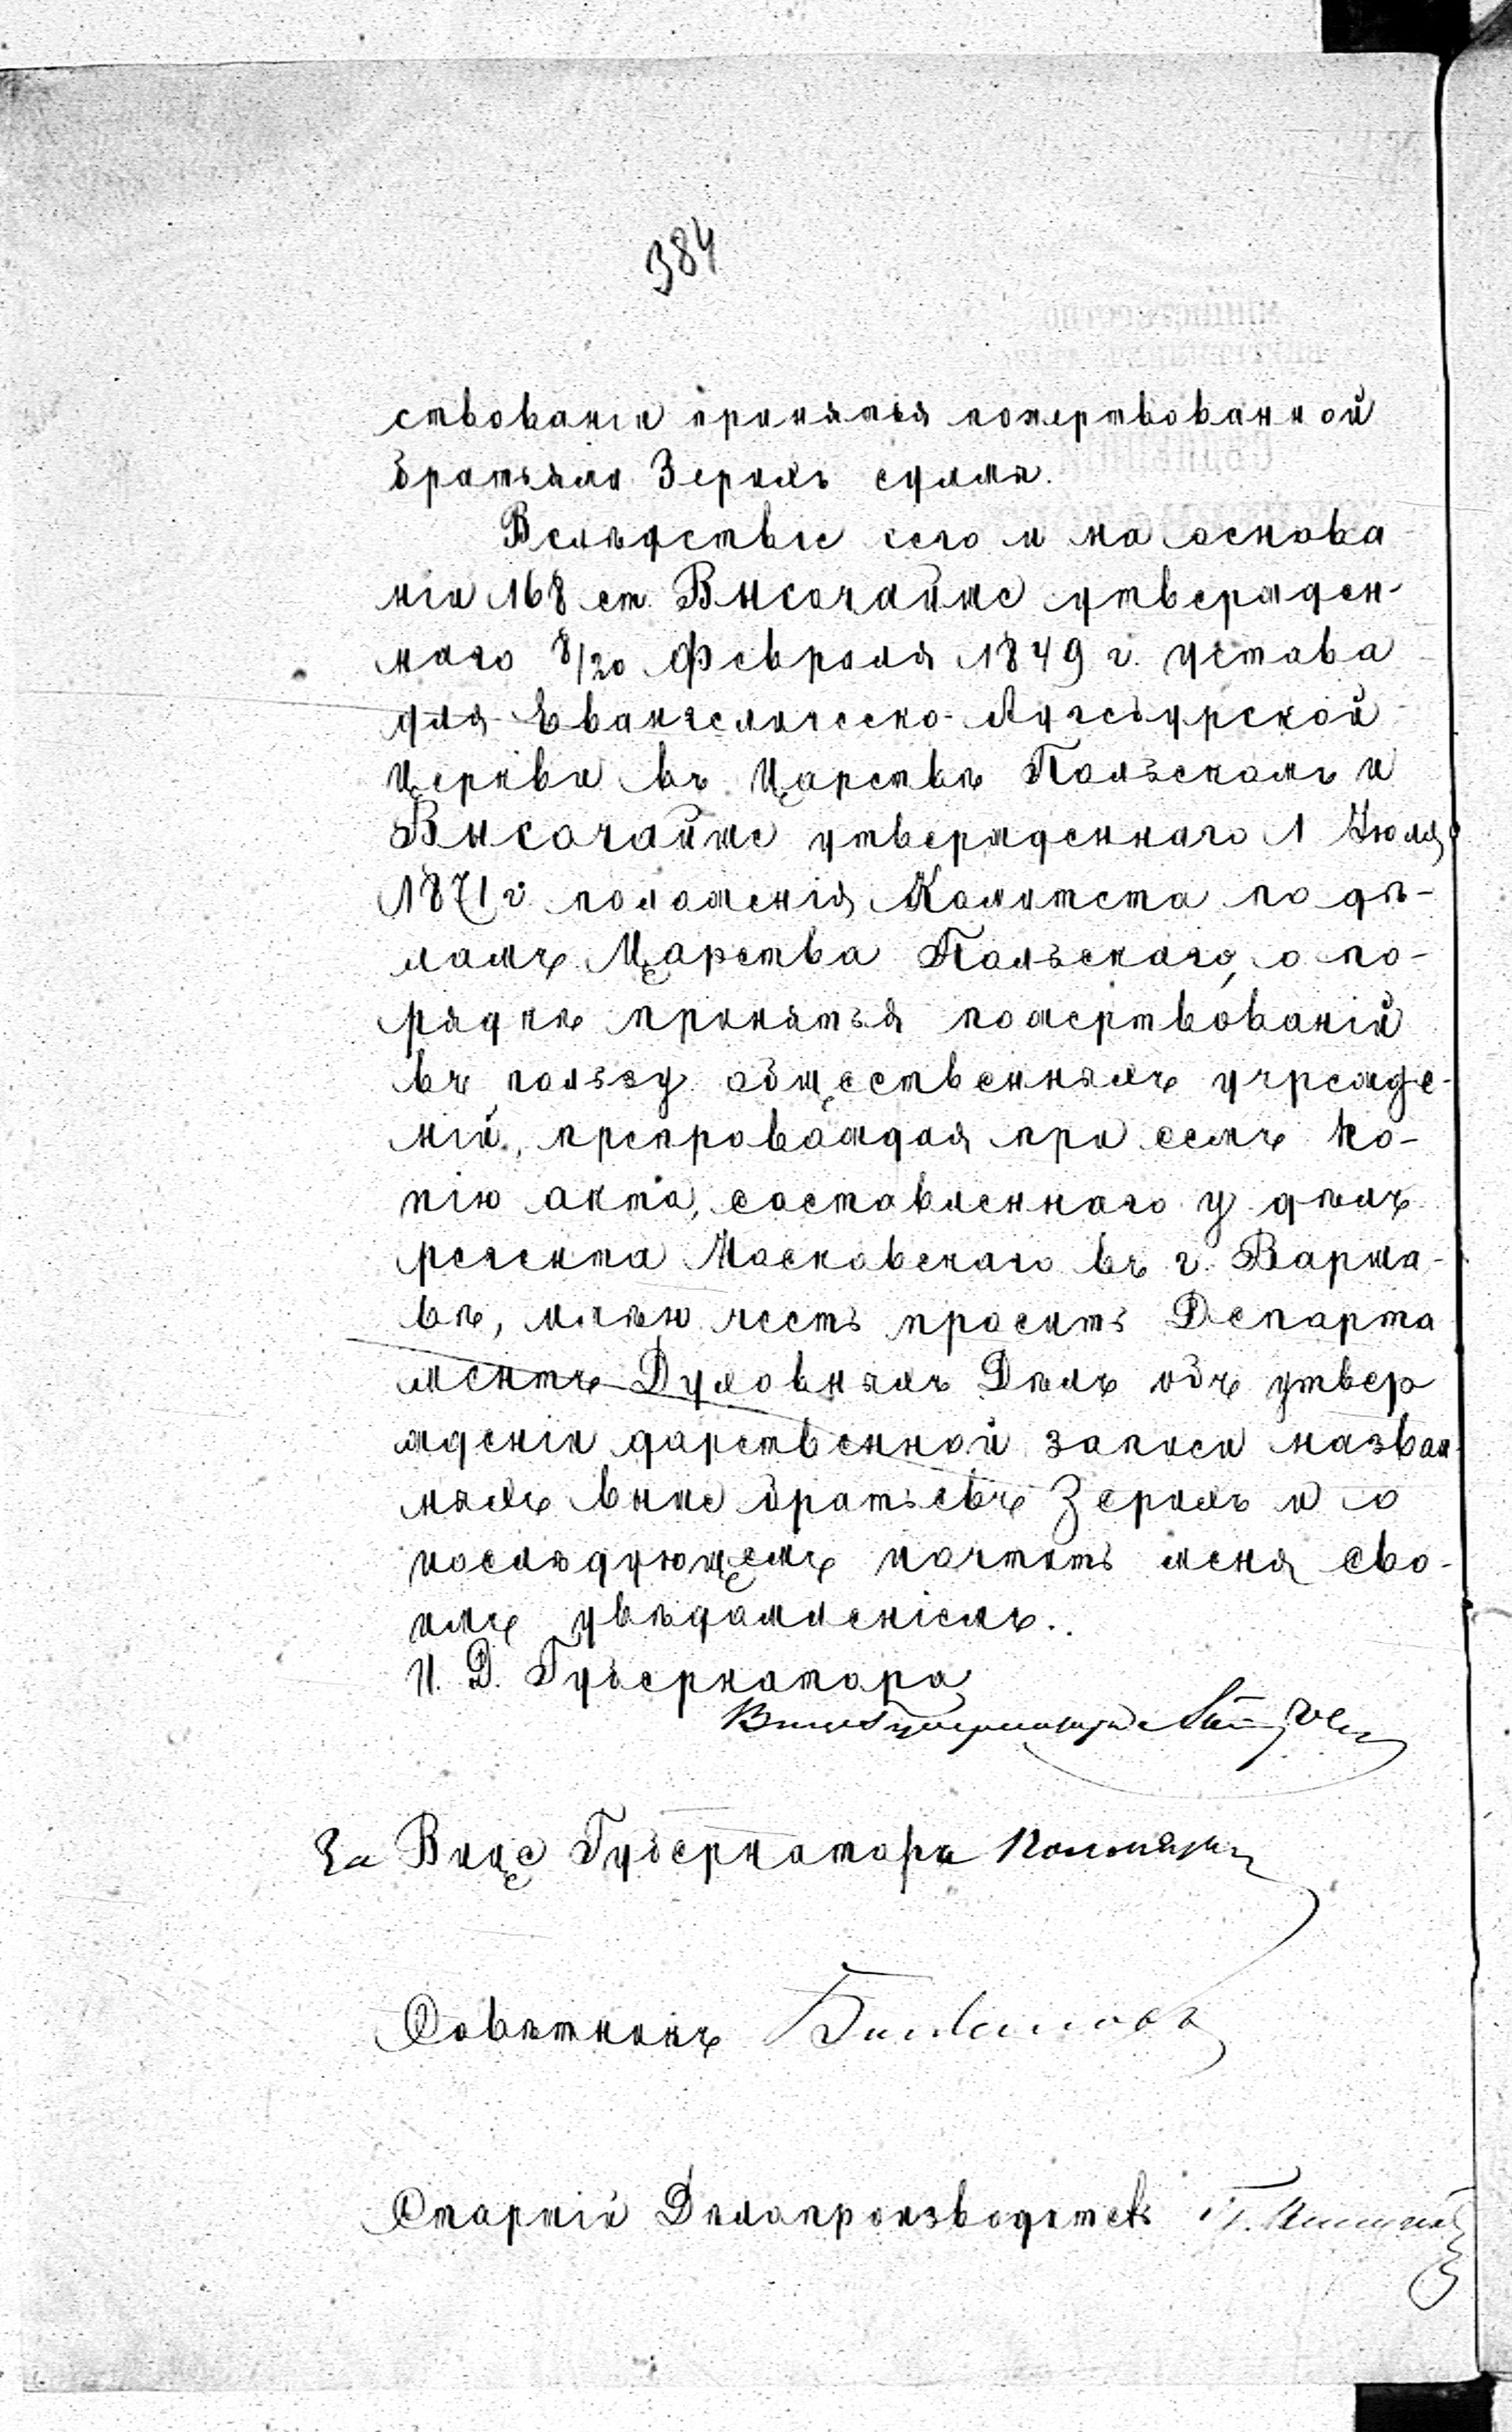 384
ствованіи принятія пожертвованной
братьями Зерихъ суммы.
Вслѣдствіе сего и на основа-
ніи 168 ст. Высочайше утвержден-
наго 8/20 Февраля 1849 г. устава
для Евангелическо-Аугсбургской
Церкви въ Царствѣ Польскомъ и
Высочайше утвержденнаго 1 Іюля
1871 г. положенія Комитета по дѣ-
ламъ Царства Польскаго, о по-
рядкѣ принятія пожертвованій
въ пользу общественныхъ учрежде-
ній, препровождая при семъ ко-
пію акта, составленнаго у дѣлъ
регента Московскаго въ г. Варша-
вѣ, имѣю честь просить Департа
ментъ Духовныхъ Дѣлъ объ утвер
жденіи дарственной записи назван-
ныхъ выше братьевъ Зерихъ и о
послѣдующемъ почтить меня сво-
имъ увѣдомленіемъ.
И. Д. Губернатора
ВицеГубернаторъ
За Вице Губернатора
Совѣтникъ
Старшій Дѣлопроизводитель